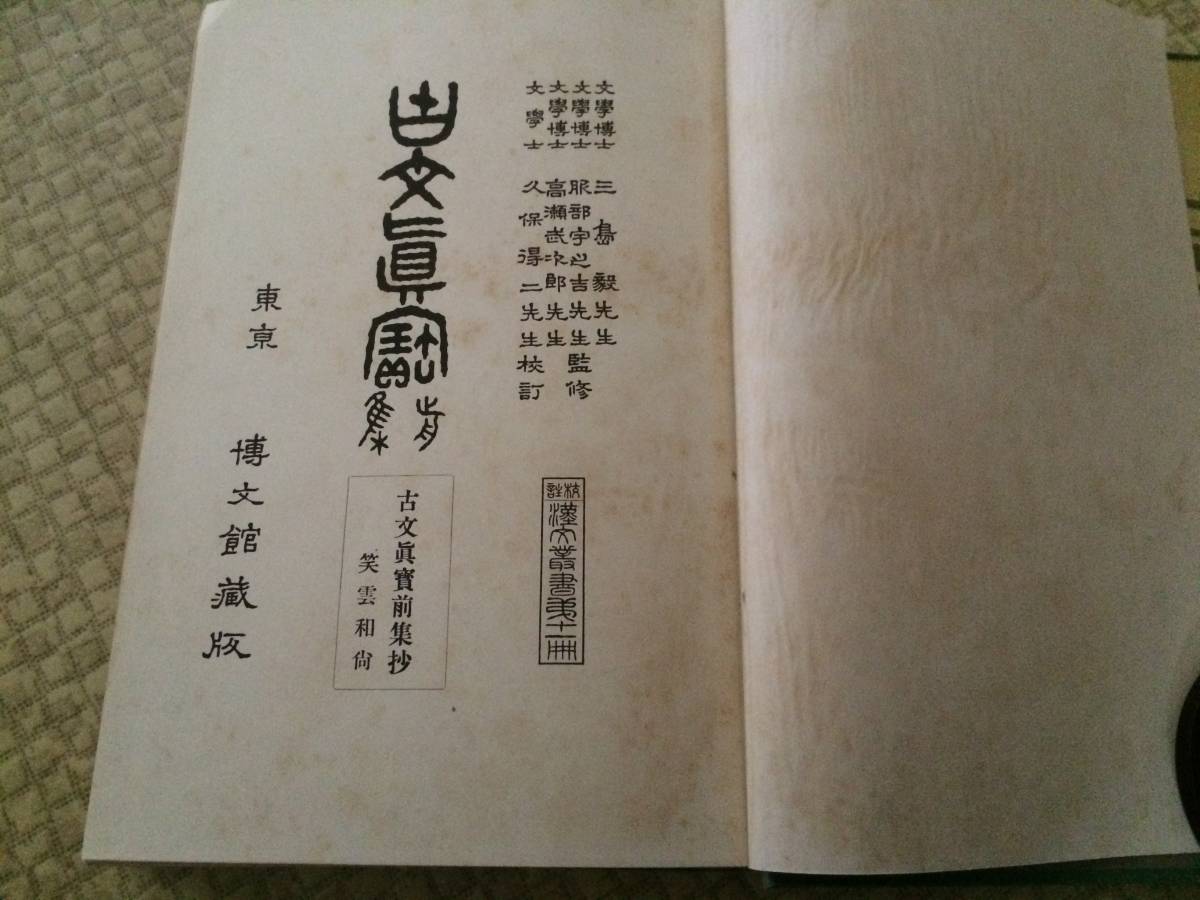 文學博士 三島毅先生
文學博士 服部宇之吉先生監修
文學博士 高瀬武次郎先生
文學士 久保得二先生校訂
校註漢文叢書第十一冊
古文眞寶前集
古文眞寶前集抄
笑雲和尙
東京 博文館藏版